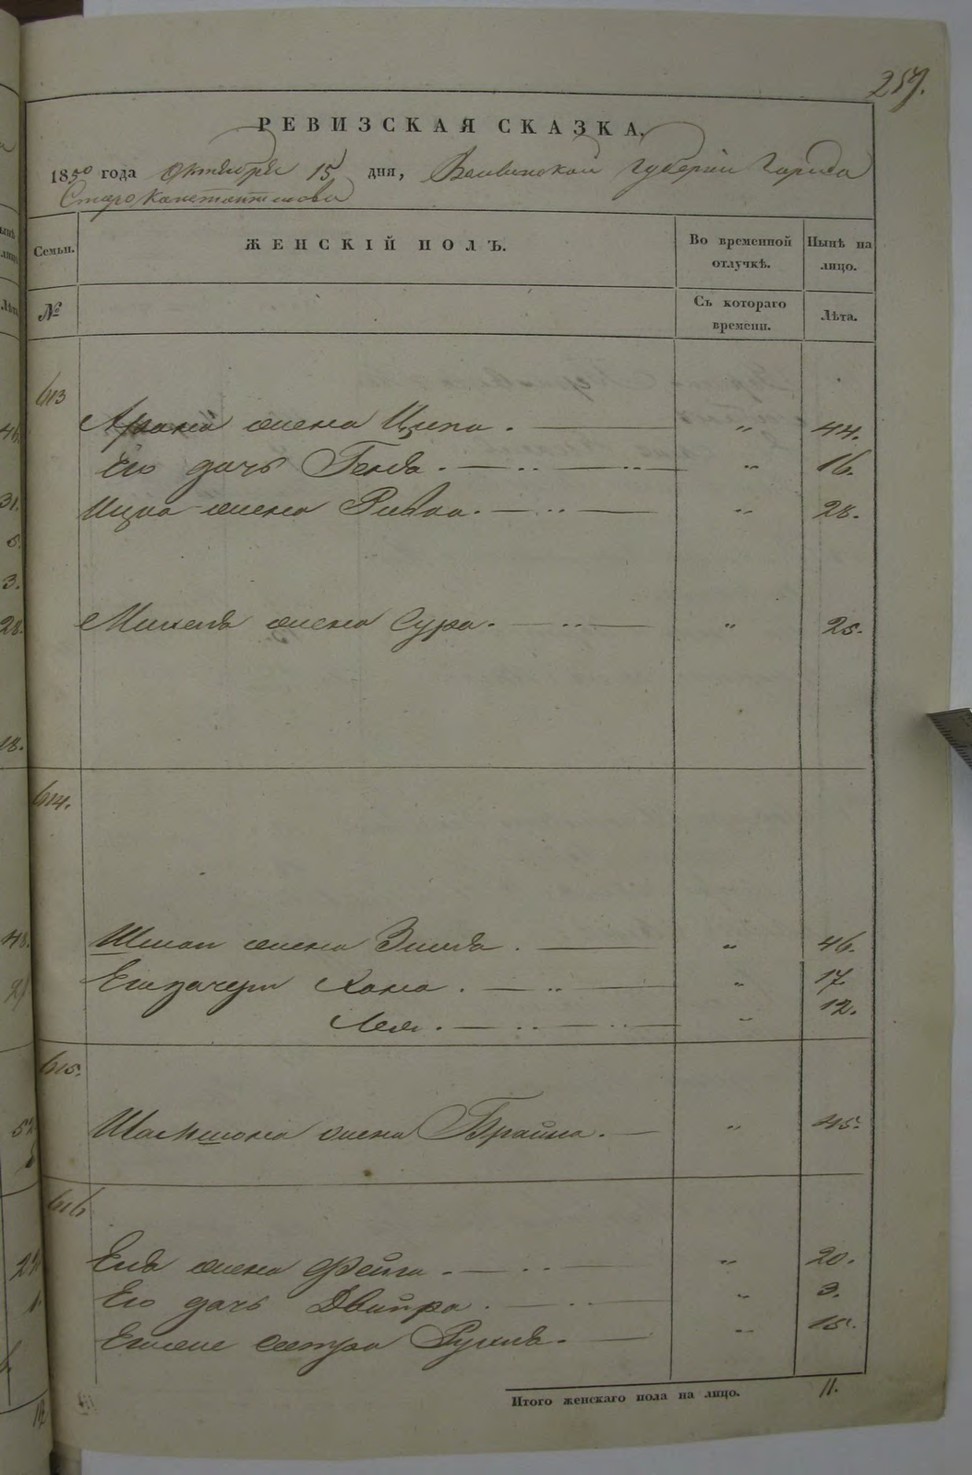 257.
РЕВИЗСКАЯ СКАЗКА.
1850 года Октября 15 дня, Волынской Губернии Города
Староконстантинова
Семьи. ЖЕНСКІЙ ПОЛЪ. Во временной отлучкѣ. Нынѣ на лицо.
№ Съ котораго времени. Лѣта.
613
жена Ципа. „ 44.
Его дочь Генда. „ 16.
Ицка жена Ривка. „ 28.
Михеля жена Сура. „ 25.
614.
жена „ 46.
Его дочери Хана. „ 17.
Лея. „ 12.
615.
Шамшона жена Брайна. „ 45.
616
Еля жена Фейга. „ 20.
Его дочь Двойра. „ 3.
Его же сестра Рухля. „ 15.
Итого женскаго пола на лицо. 11.